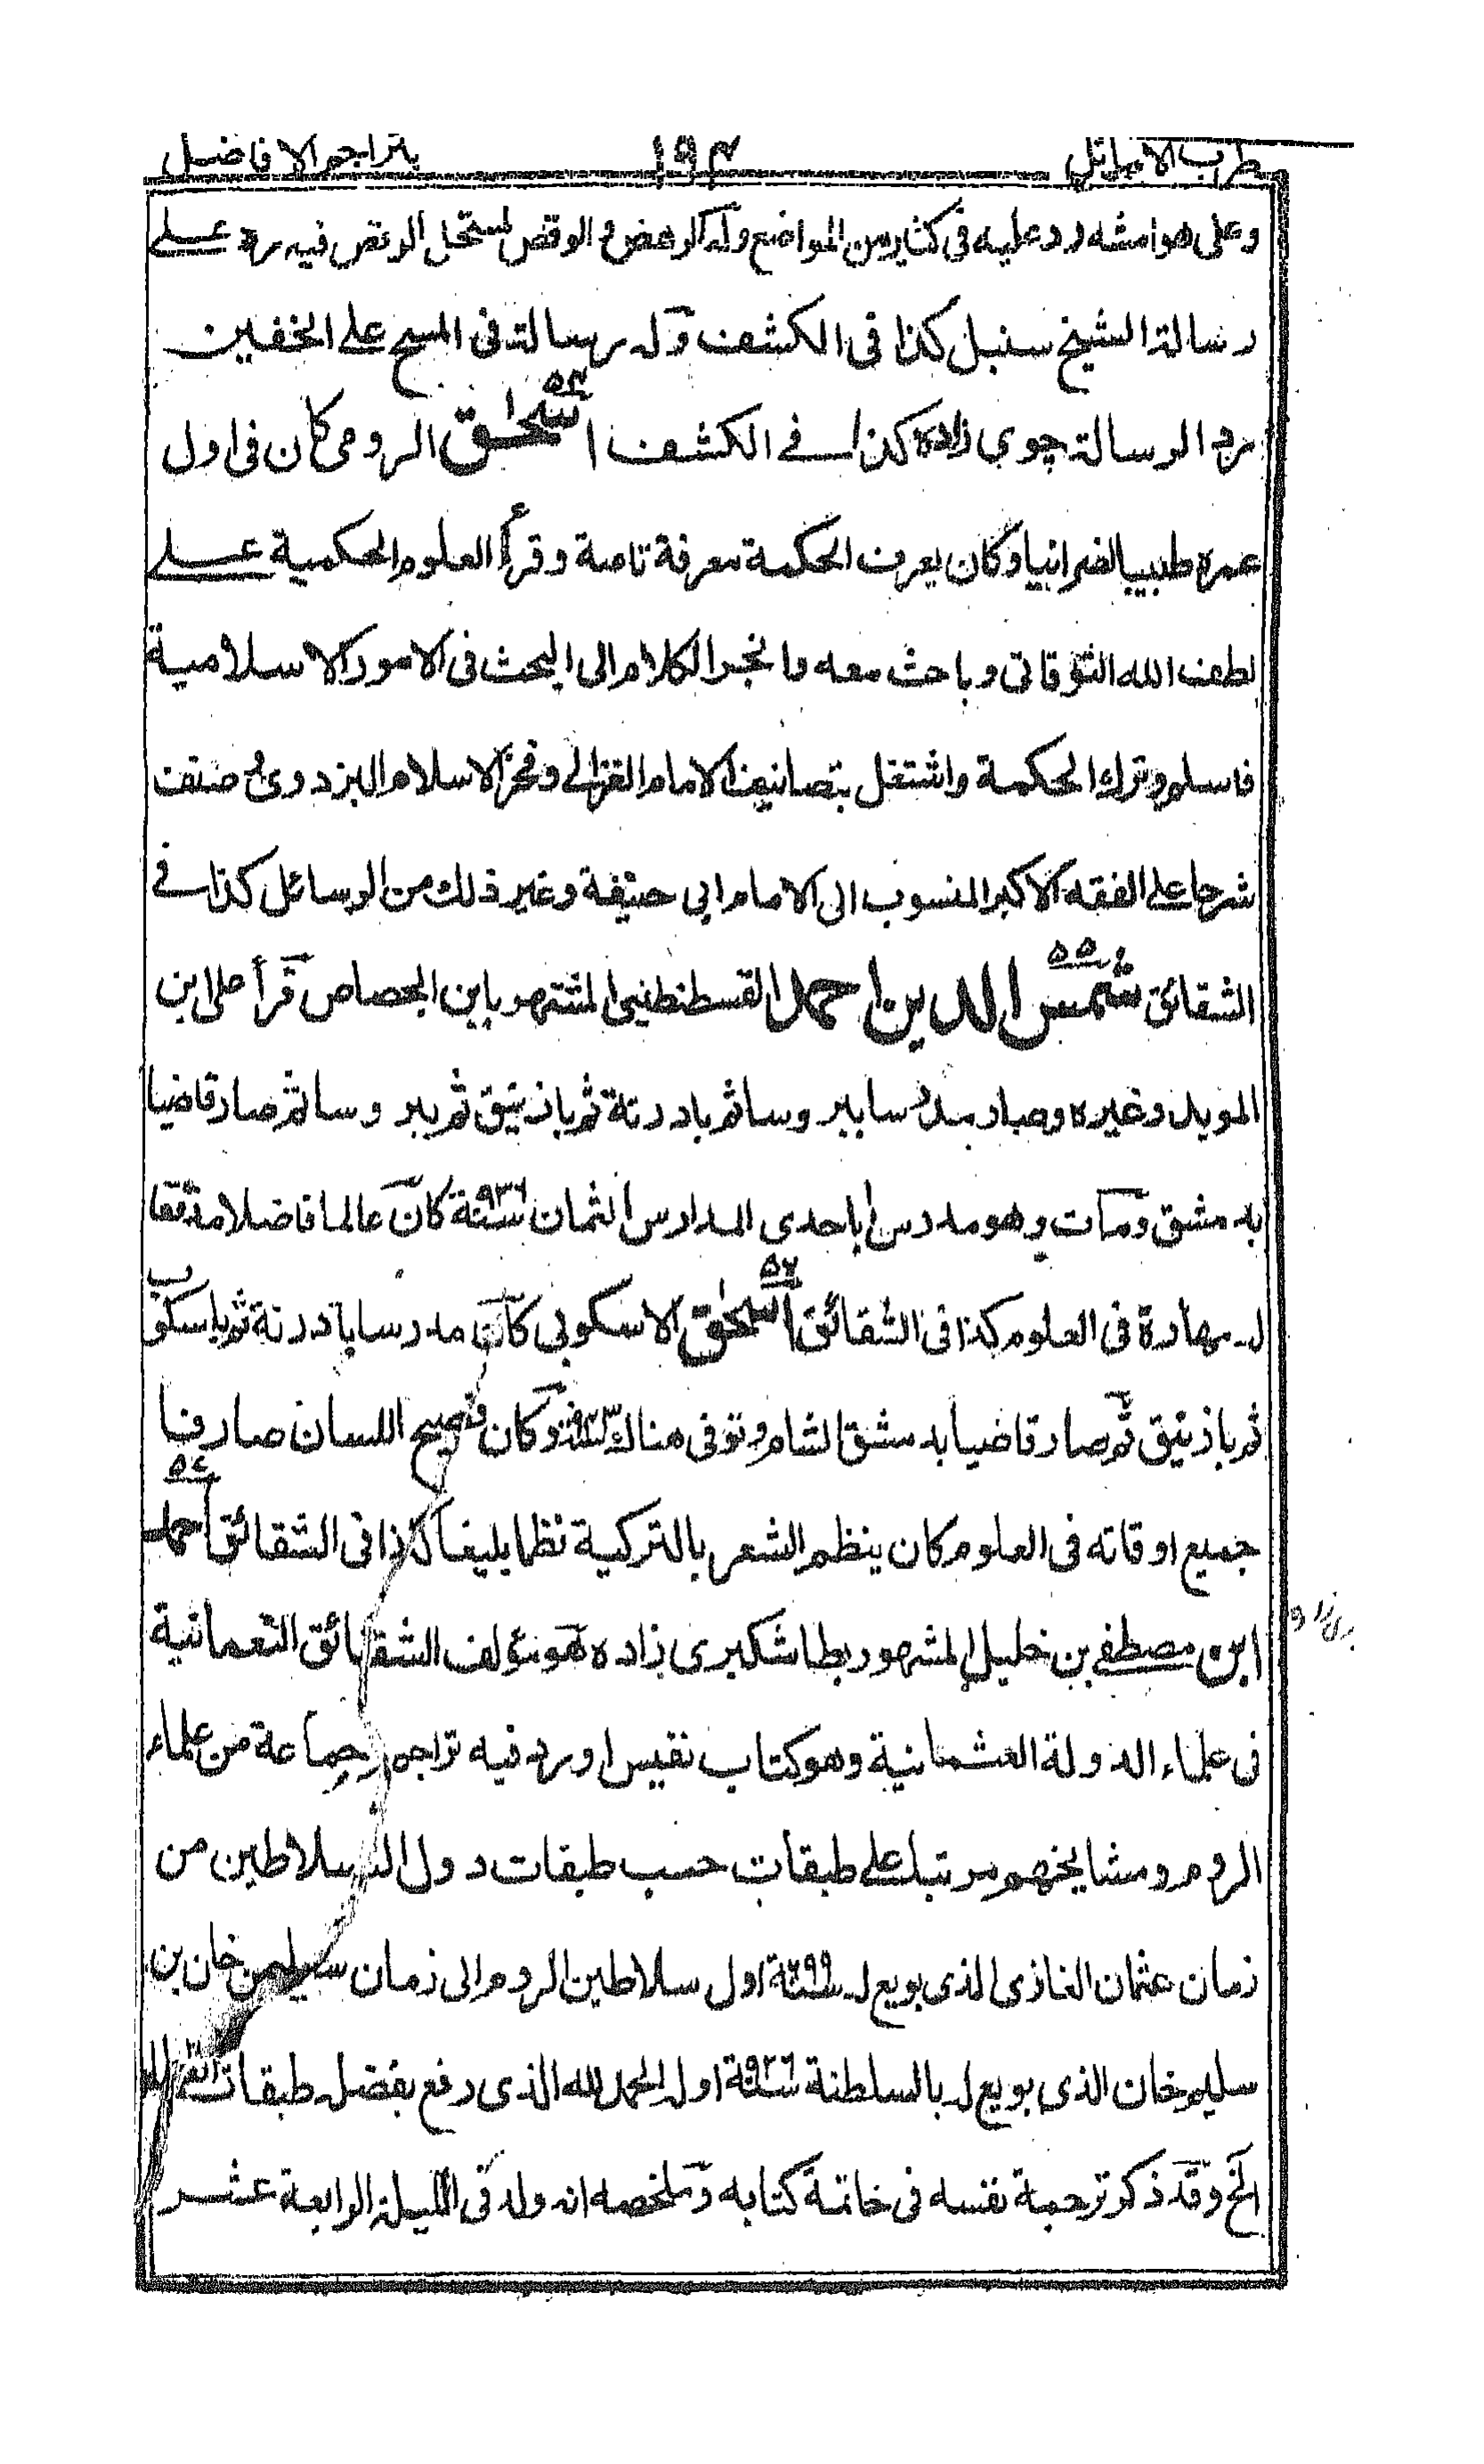 طرب الاماثل ١٩٤ بتراجم الافاضل
وعلى هوامشه رد عليه فى كثير من المواضع وله الرهض و الوقص لمستحل الرقص فيه رد على
رسالة الشيخ سنبل كذا فى الكشف وله رسالة فى المسح على الخفين
رد الرسالة جوي زاده كذا فے الكشف ٥٤ اسحاق الرومى كان فى اول
عمره طبيبا نصرانيا وكان يعرف الحكمة معرفة تامة وقرأ العلوم الحكمية على
لطف الله التوقاتى وباحث معه وانجر الكلام الى البحث فى الامور الاسلامية
فاسلم وترك الحكمة واشتغل بتصانيف الامام الغزالے وفخر الاسلام البزدوى و صنف
شرحا على الفقه الاكبر المنسوب الى الامام ابى حنيفة وغير ذلك من الرسائل كذا فے
الشقائق ٥٥ شمس الدين احمد القسطنطينى المشتهر بابن الجصاص قرأ على ابن
المويد وغيره وصار مدرسا ببروسا ثم بادرنة ثم بازنيق ثم ببروسا ثم صار قاضيا
بدمشق ومات وهو مدرس باحدى المدارس الثمان سنة ٩٣٦ كان عالما فاضلا مدققا
له مهارة فى العلوم كذا فى الشقائق ٥٧ اسحق الاسكوبى كان مدرسا بادرنة ثم باسكوب
ثم بازنيق ثم صار قاضيا بدمشق الشام وتوفى هناك سنة ٩٣٣ وكان فصيح اللسان صارفا
جميع اوقاته فى العلوم كان ينظم الشعر بالتركية نظما بليغا كذا فى الشقائق ٥٤ احمد
ابن مصطفے بن خليل المشهور بطاشكبرى زاده هو مؤلف الشقائق النعمانية
فى علماء الدولة العثمانية وهو كتاب نفيس اورد فيه تراجم جماعة من علماء
الروم ومشايخهم مرتبا على طبقات حسب طبقات دول السلاطين من
زمان عثمان الغازى الذى بويع له سنة ٦٩٩ اول سلاطين الروم الى زمان سليمن خان بن
سليم خان الذى بويع له بالسلطنة سنة ٩٢٦ اوله الحمد لله الذى رفع بفضله طبقات
الخ وقد ذكر ترجمة نفسه فى خاتمة كتابه وملخصه انه ولد فى الليلة الرابعة عشر